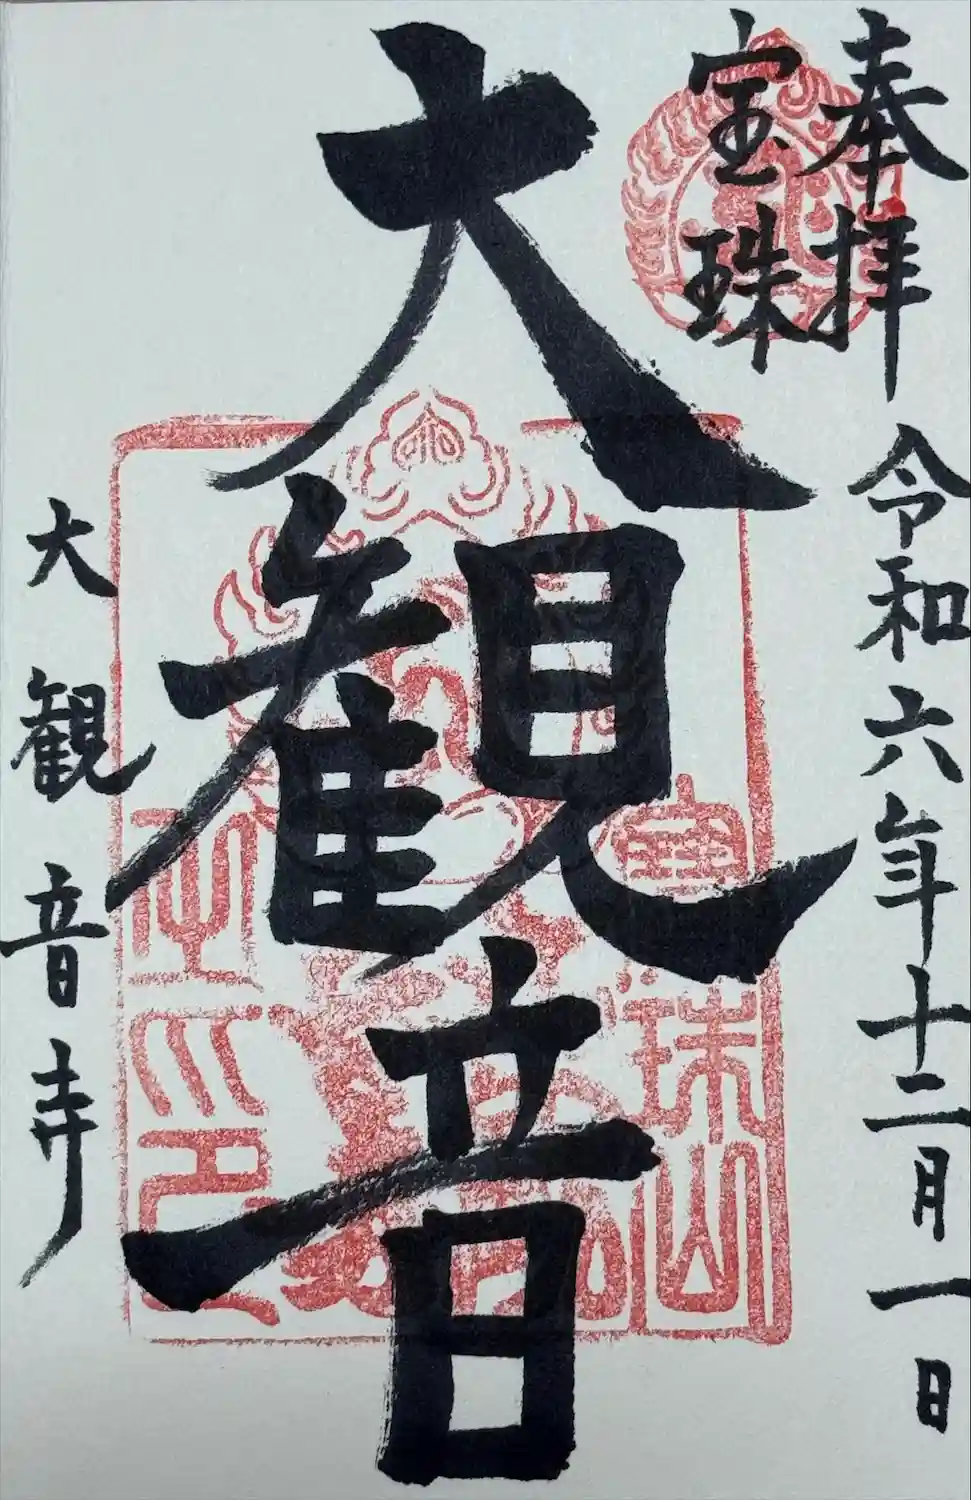 奉拝
令和六年十二月一日
宝珠
大観音
大観音寺
宝珠山